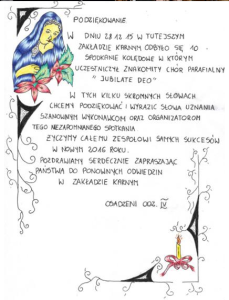 PODZIĘKOWANIE
W DNIU 28 12 15 W TUTEJSZYM
ZAKŁADZIE KARNYM ODBYŁO SIĘ 10
SPOTKANIE KOLĘDOWE W KTÓRYM
UCZESTNICZYŁ ZNAKOMITY CHÓR PARAFIALNY
" JUBILATE DEO"
W TYCH KILKU SKROMNYCH SŁOWACH
CHCEMY PODZIĘKOWAĆ I WYRAZIĆ SŁOWA UZNANIA
SZANOWNYM WYKONAWCOM ORAZ ORGANIZATOROM
TEGO NIEZAPOMNIANEGO SPOTKANIA
ŻYCZYMY CAŁEMU ZESPOŁOWI SAMYCH SUKCESÓW
W NOWYM 2016 ROKU.
POZDRAWIAMY SERDECZNIE ZAPRASZAJĄC
PAŃSTWA DO PONOWNYCH ODWIEDZIN
W ZAKŁADZIE KARNYM
OSADZENI ODDZ. IV